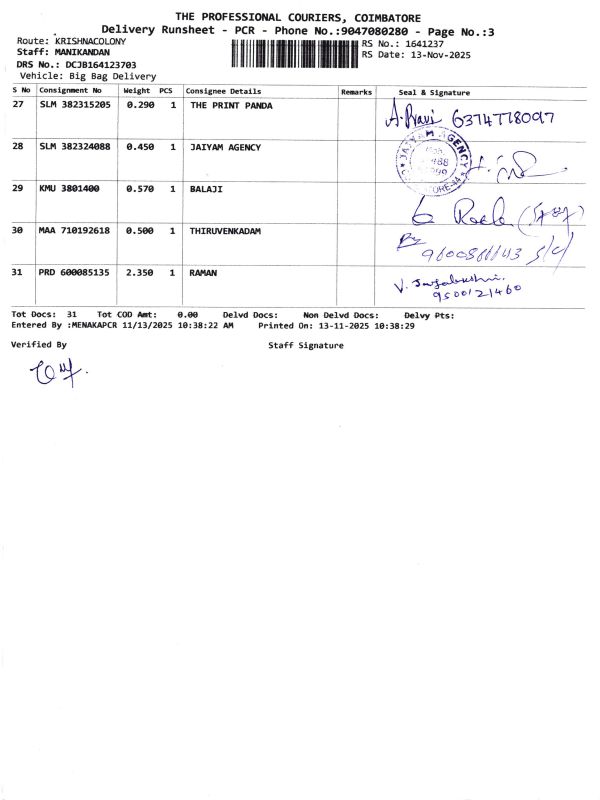 THE PROFESSIONAL COURIERS, COIMBATORE
Delivery Runsheet - PCR - Phone No.:9047080280 - Page No.:3
Route: KRISHNACOLONY
RS No.: 1641237
Staff: MANIKANDAN
RS Date: 13-Nov-2025
DRS No.: DCJB164123703
Vehicle: Big Bag Delivery
S No Consignment No Weight PCS Consignee Details Remarks Seal & Signature
27 SLM 382315205 0.290 1 THE PRINT PANDA
6374778097
28 SLM 382324088 0.450 1 JAIYAM AGENCY
JAIYAM AGENCY
29 KMU 3801400 0.570 1 BALAJI
30 MAA 710192618 0.500 1 THIRUVENKADAM
31 PRD 600085135 2.350 1 RAMAN
9500121460
Tot Docs: 31 Tot COD Amt: 0.00 Delvd Docs: Non Delvd Docs: Delvy Pts:
Entered By :MENAKAPCR 11/13/2025 10:38:22 AM Printed On: 13-11-2025 10:38:29
Verified By Staff Signature